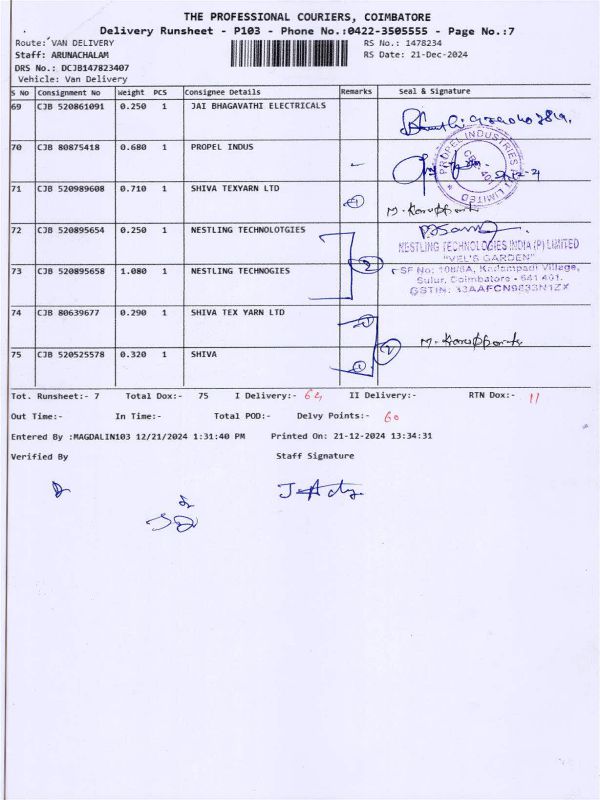 THE PROFESSIONAL COURIERS, COIMBATORE
Delivery Runsheet - P103 - Phone No.:0422-3505555 - Page No.:7
Route: VAN DELIVERY RS No.: 1478234
Staff: ARUNACHALAM RS Date: 21-Dec-2024
DRS No.: DCJB147823407
Vehicle: Van Delivery
S No Consignment No Weight PCS Consignee Details Remarks Seal & Signature
69 CJB 520861091 0.250 1 JAI BHAGAVATHI ELECTRICALS
70 CJB 80875418 0.680 1 PROPEL INDUS
PROPEL INDUSTRIES LIMITED
71 CJB 520989608 0.710 1 SHIVA TEXYARN LTD 1
M. Karuppan
72 CJB 520895654 0.250 1 NESTLING TECHNOLOTGIES
NESTLING TECHNOLOGIES INDIA (P) LIMITED
"VEL'S GARDEN"
73 CJB 520895658 1.080 1 NESTLING TECHNOGIES 2
SF No: 108/8A, Kadampadi Village,
Sulur, Coimbatore - 641 401.
GSTIN: 33AAFCN9833N1ZX
74 CJB 80639677 0.290 1 SHIVA TEX YARN LTD 1
M. Karuppan
75 CJB 520525578 0.320 1 SHIVA 1 2
Tot. Runsheet:- 7 Total Dox:- 75 I Delivery:- 64 II Delivery:- RTN Dox:- 11
Out Time:- In Time:- Total POD:- Delvy Points:- 60
Entered By :MAGDALIN103 12/21/2024 1:31:40 PM Printed On: 21-12-2024 13:34:31
Verified By Staff Signature